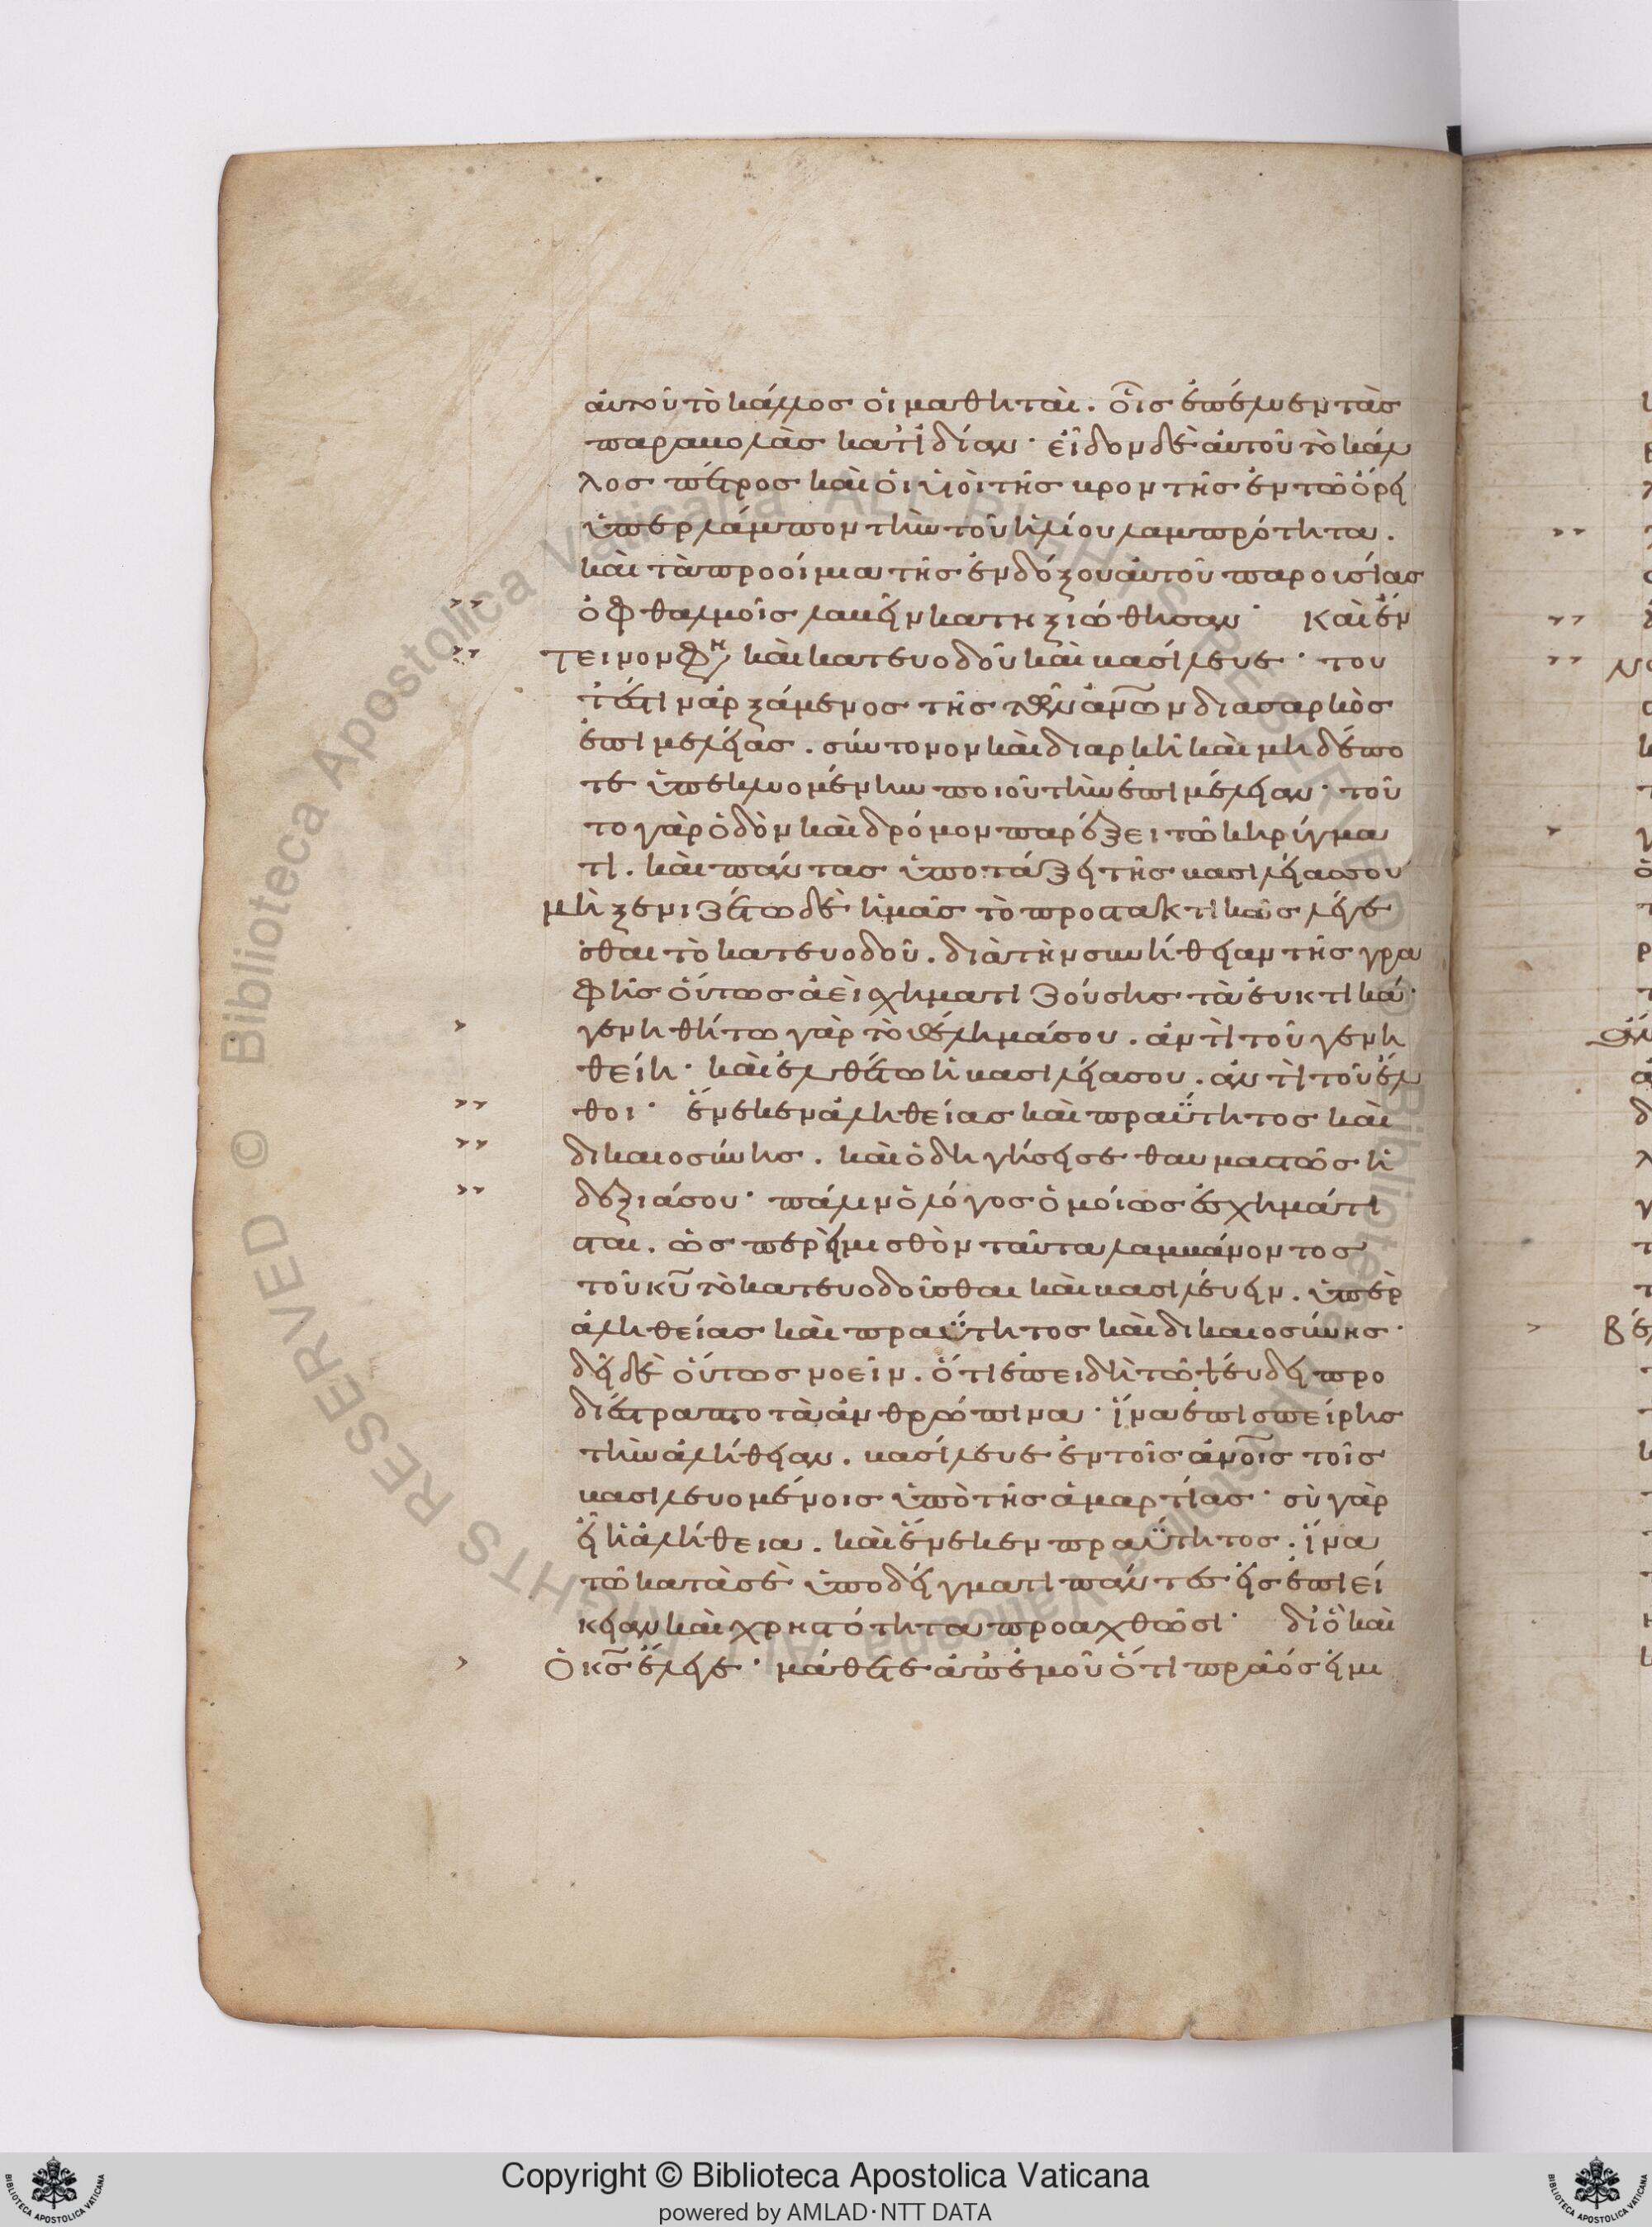 αὐτοῦ τὸ κάλλος οἱ μαθηταὶ. οἷς ἐπέλυεν τὰς
παραβολὰς κατϊδίαν· εἶδον δὲ αὐτοῦ τὸ κάλ
λος πέτρος καὶ οἱ ὑιοὶ τῆς βροντῆς ἐν τῶ ὄρει
ὑπερλάμπον τὴν τοῦ ἡλίου λαμπρότητα.
καὶ τὰ προοίμια τῆς ἐνδόξου αὐτοῦ παρουσίας
ὀφθαλμοῖς λαβεῖν κατηξιώθησαν· Καὶ ἔν
τεινον φη καὶ κατευοδοῦ καὶ βασίλευε· του
τέστιν ἀρξάμενος τῆς τῶν ἀνῶν διασαρκὸς
ἐπιμελείας. σύντονον καὶ διαρκῆ καὶ μηδέπο
τε ὑπεκλυομένην ποιοῦ τὴν ἐπιμέλειαν· τοῦ
το γὰρ ὁδὸν καὶ δρόμον παρέξει τῶ κηρύγμα
τι. καὶ πάντας ὑποτάξει τῆς βασιλείας σου
μὴ ξενιζέτω δὲ ἡμᾶς τὸ προστακτικῶς λέγε
σθαι τὸ κατευοδοῦ. διὰ τὴν συνήθειαν τῆς γρα
φῆς οὕτως ἀεὶ χηματιζούσης τὰ ἐυκτικά·
γενηθήτω γὰρ τὸ θέλημά σου. ἀντὶ τοῦ γενη
θείη· καὶ ἐλθέτω ἡ βασιλεία σου. ἀντὶ τοῦ ἔλ
θοι· ἕνεκεν ἀληθείας καὶ πραΰτητος καὶ
δικαιοσύνης. καὶ ὁδηγήσει σε θαυμαστῶς ἡ
δεξιά σου· πάλιν ὁ λόγος ὁμοίως ἐσχημάτι
σται. ὡς περ εἰ μισθὸν ταῦτα λαμβάνοντος
τοῦ κυ τὸ κατευοδοῦσθαι καὶ βασιλεύειν. ὑπὲρ
ἀληθείας καὶ πραΰτητος καὶ δικαιοσύνης·
δεῖ δὲ οὕτως νοεῖν. ὅτι ἐπειδὴ τῶ ψεύδει προ
διέστραπτο τὰ ἀνθρώπινα· ἵνα ἐπισπείρης
τὴν ἀλήθειαν. βασίλευε ἐν τοῖς ἀνοις τοῖς
βασιλευομένοις ὑπὸ τῆς ἁμαρτίας· σὺ γὰρ
εἶ ἡ ἀλήθεια. καὶ ἕνεκεν πραΰτητος. ἵνα
τῶ κατὰ σὲ ὑποδείγματι πάντες εἰς ἐπιεί
κειαν καὶ χρηστότητα προαχθῶσι· διὸ καὶ
ὁ κς ἔλεγε· μάθετε ἀπ ἐμοῦ ὅτι πρᾶός εἰμι
Copyright © Biblioteca Apostolica Vaticana
powered by AMLAD·NTT DATA